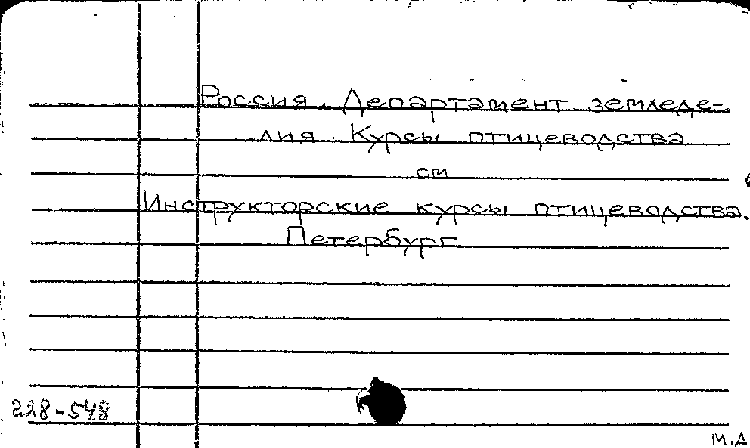 Россия. Департамент земледе-
лия. Курсы птицеводства
см
Инструкторские курсы птицеводства.
Петербург
228-548
М.Д